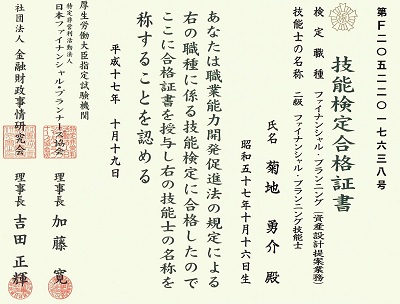 第F20522017638号
技能検定合格証書
検定職種 ファイナンシャル・プランニング(資産設計提案業務)
技能士の名称 二級 ファイナンシャル・プランニング技能士
氏名 菊地 勇介 殿
昭和五十七年十月十六日生
あなたは職業能力開発促進法の規定による
右の職種に係る技能検定に合格したので
ここに合格証書を授与し右の技能士の名称を
称することを認める
平成十七年 十月十九日
厚生労働大臣指定試験機関
特定非営利活動法人
日本ファイナンシャル・プランナーズ協会 理事長 加藤 寛
社団法人 金融財政事情研究会 理事長 吉田 正輝